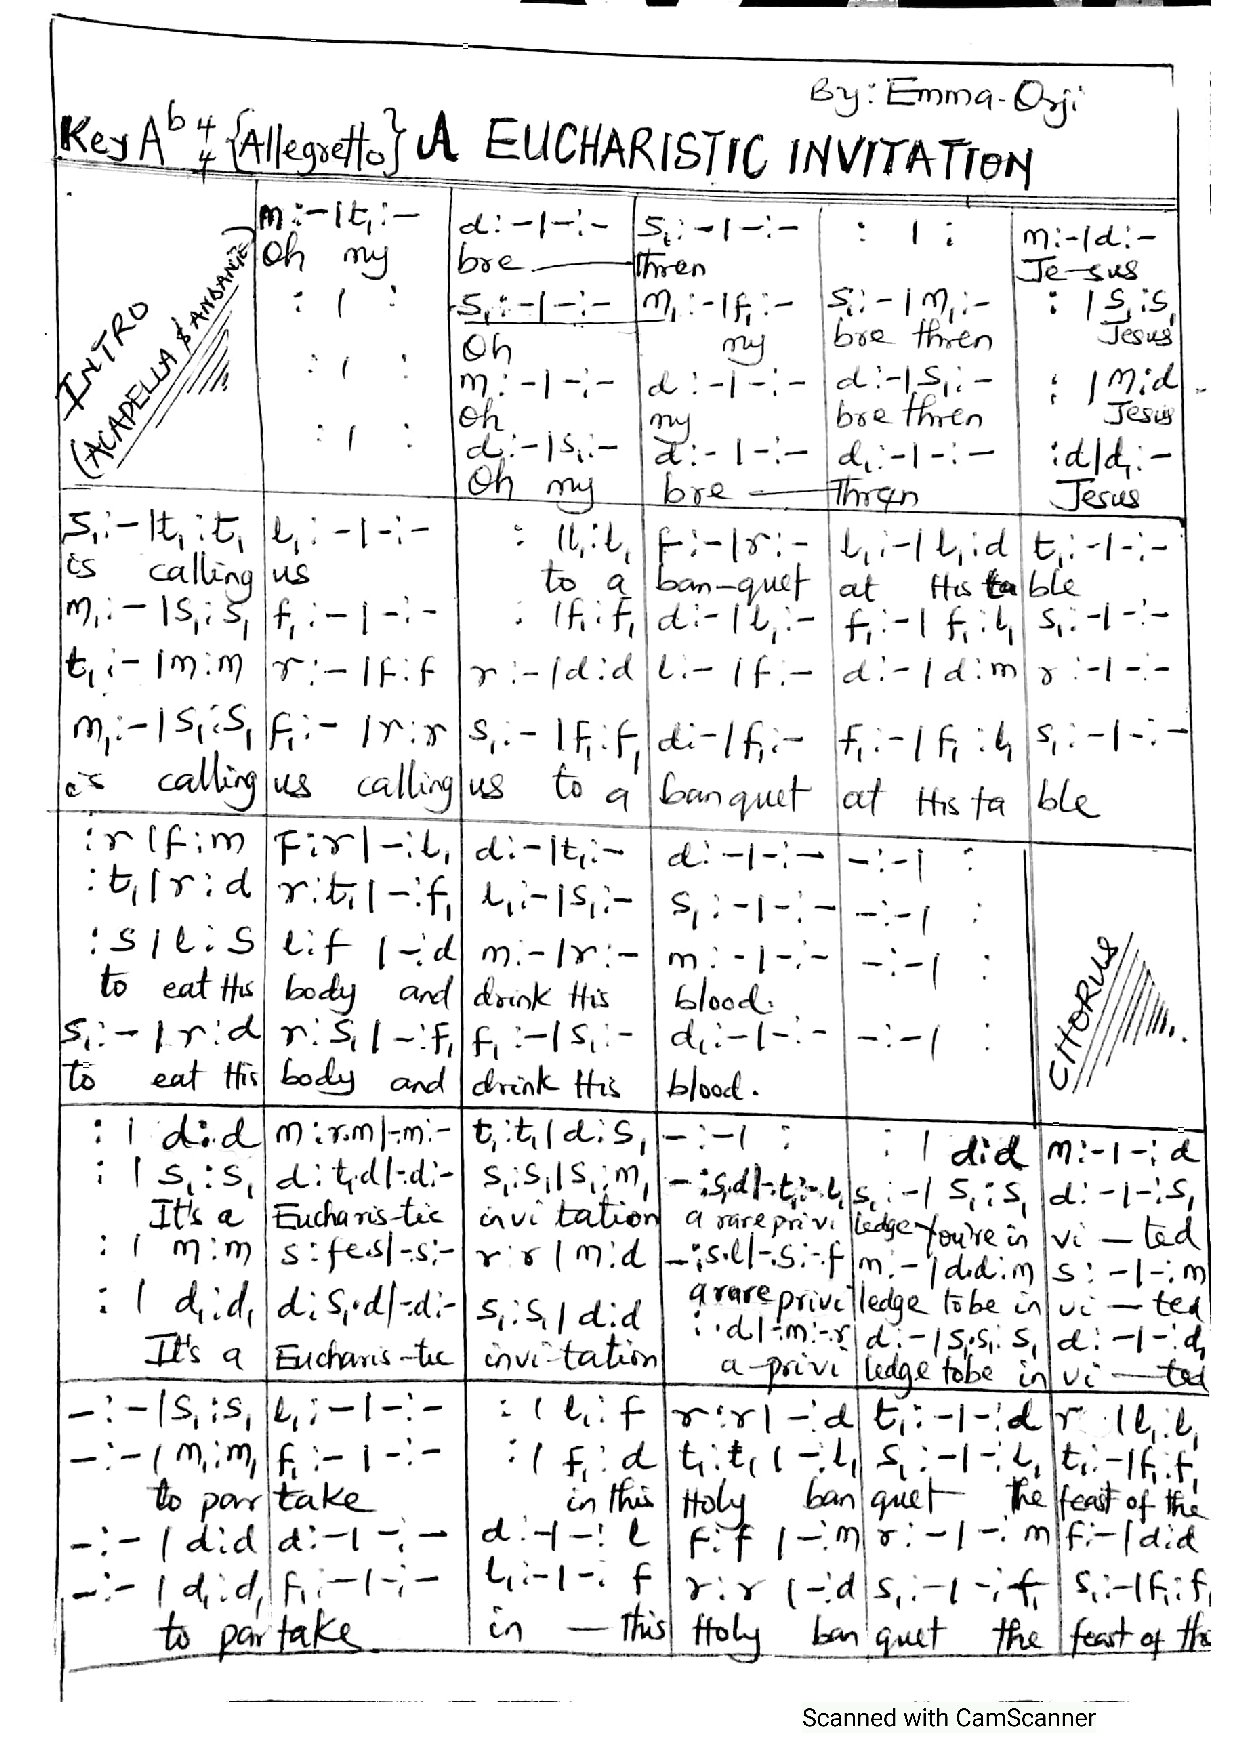 By: Emma-Orji
Key A♭ 4/4 {Allegretto} A EUCHARISTIC INVITATION
INTRO
(ACAPELLA & ANDANTE)
m:-|t₁:- d:-|-:- s₁:-|-:- : | : m:-|d:-
Oh my bre thren Je-sus
: | : s₁:-|-:- m₁:-|f₁:- s₁:-|m₁:- : |s₁:s₁
Oh my bre thren Jesus
: | : m:-|-:- d:-|-:- d:-|s₁:- : |m:d
Oh my bre thren Jesus
: | : d:-|s₁:- d:-|-:- d₁:-|-:- :d|d₁:-
Oh my bre thren Jesus
s₁:-|t₁:t₁ l₁:-|-:- : |l₁:l₁ f:-|r:- l₁:-|l₁:d t₁:-|-:-
is calling us to a ban-quet at His ta ble
m₁:-|s₁:s₁ f₁:-|-:- : |f₁:f₁ d:-|l₁:- f₁:-|f₁:l₁ s₁:-|-:-
t₁:-|m:m r:-|f:f r:-|d:d l:-|f:- d:-|d:m r:-|-:-
m₁:-|s₁:s₁ f₁:-|r:r s₁:-|f₁:f₁ d:-|f₁:- f₁:-|f₁:l₁ s₁:-|-:-
is calling us calling us to a banquet at His ta ble
:r|f:m f:r|-:l₁ d:-|t₁:- d:-|-:- -:-| :
:t₁|r:d r:t₁|-:f₁ l₁:-|s₁:- s₁:-|-:- -:-| :
:s|l:s l:f|-:d m:-|r:- m:-|-:- -:-| :
to eat His body and drink His blood.
s₁:-|r:d r:s₁|-:f₁ f₁:-|s₁:- d₁:-|-:- -:-| :
to eat His body and drink His blood.
CHORUS
: |d:d m:r.m|-.m:- t₁:t₁|d:s₁ -:-| : : |d:d m:-|-:d
: |s₁:s₁ d:t₁.d|-.d:- s₁:s₁|s₁:m₁ -:s₁.d|-.t₁:-.l₁ s₁:-|s₁:s₁ d:-|-:s₁
It's a Eucharis-tic invi tation a rare privi ledge you're in vi-ted
: |m:m s:fe.s|-.s:- r:r|m:d -:s.l|-.s:-.f m:-|d.d:m s:-|-:m
a rare privi ledge to be in vi-ted
: |d₁:d₁ d:s₁.d|-.d:- s₁:s₁|d:d : .d|-.m:-.r d:-|s₁.s₁:s₁ d:-|-:d₁
It's a Eucharis-tic invi-tation a-privi ledge to be in vi-ted
-:-|s₁:s₁ l₁:-|-:- : |l₁:f r:r|-:d t₁:-|-:d r |l₁:l₁
-:-|m₁:m₁ f₁:-|-:- : |f₁:d t₁:t₁|-:l₁ s₁:-|-:l₁ t₁:-|f₁:f₁
to par take in this Holy ban quet the feast of the
-:-|d:d d:-|-:- d:-|-:l f:f|-:m r:-|-:m f:-|d:d
-:-|d₁:d₁ f₁:-|-:- l₁:-|-:f r:r|-:d s₁:-|-:f₁ s₁:-|f₁:f₁
to par take in - this Holy ban quet the feast of the
Scanned with CamScanner